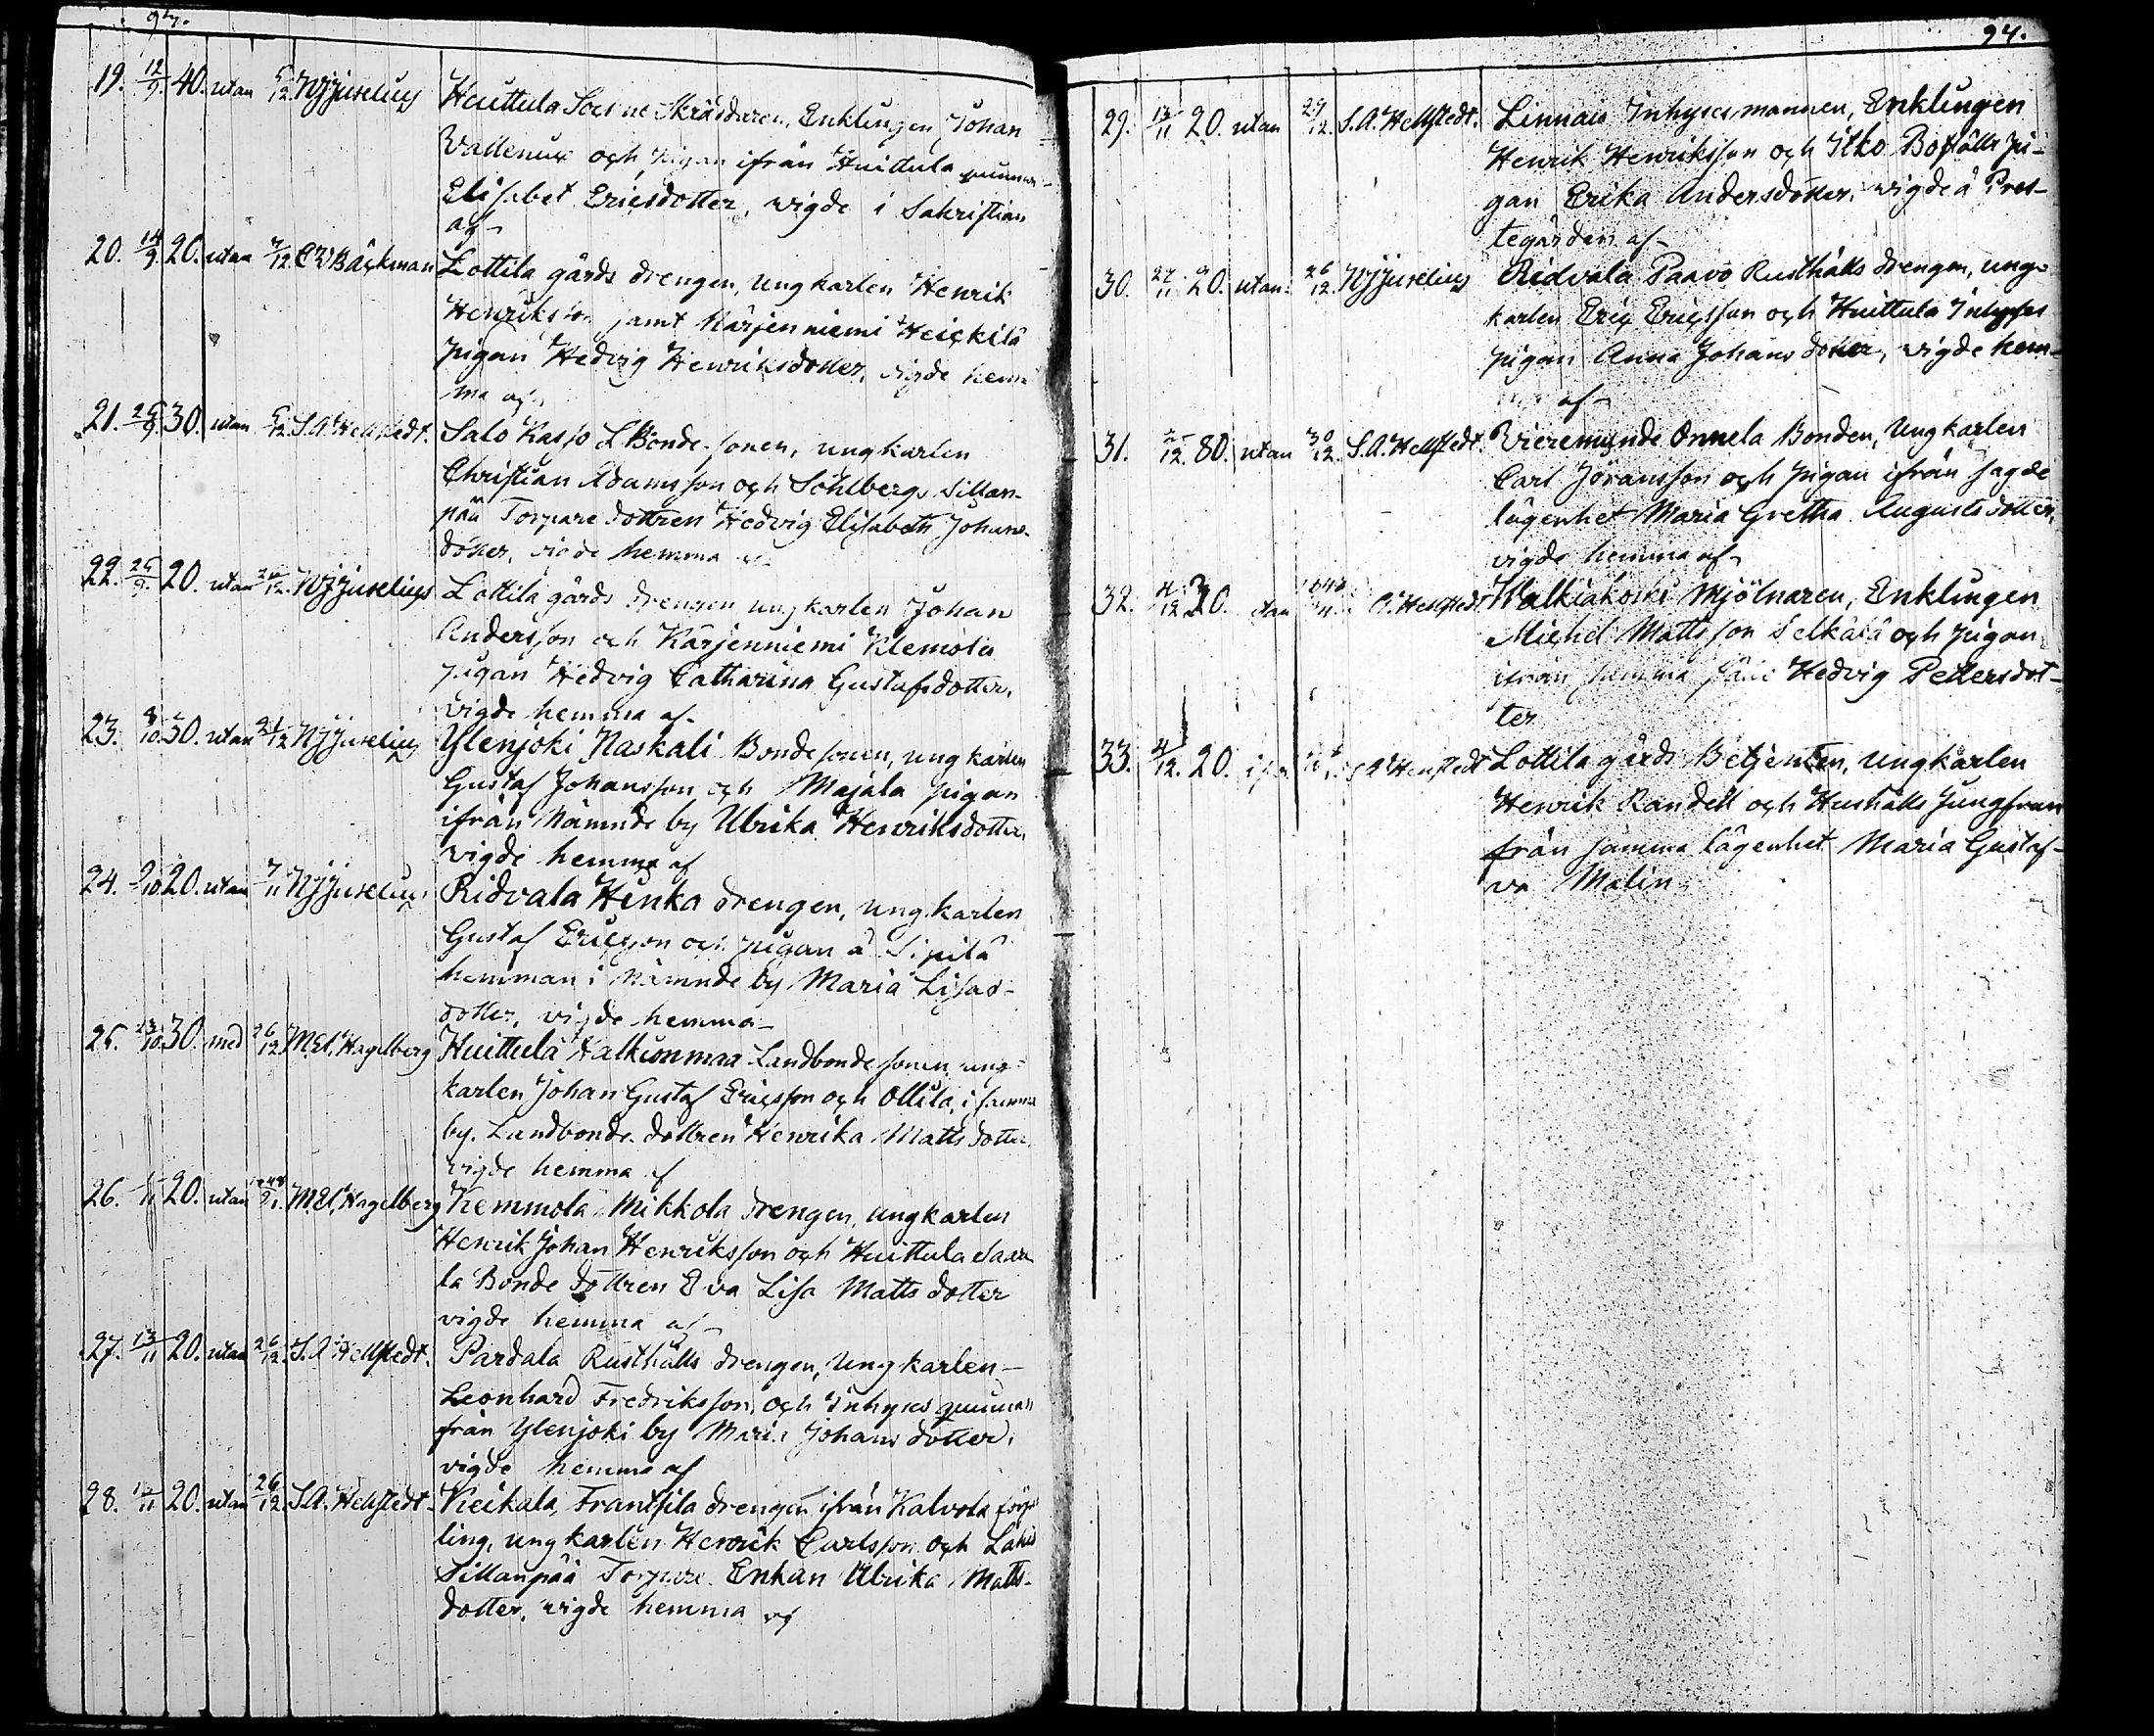 94.
19. 12/9. 40. utan 5/12. NJJuselius Huittula Sockne Skräddaren, Enklingen Johan
Vallenius och Pigan ifrån Huittula
Elisabet Ericsdotter, vigde i Sakristian
af
20. 14/9. 20. utan 7/12 CWBäckman Lottila gårds drengen, ungkarlen Henrik
Henriksson samt Kärjenniemi Heickilä
pigan Hedvig Henriksdotter, vigde hem-
ma af
21. 25/9. 30. utan 5/12. S.A. Hellstedt. Salo Kasso L. Bonde sonen, ungkarlen
Christian Adamsson och Sohlbergs Sillan-
pää Torpare dottren Hedvig Elisabeth Johans-
dotter, vigde hemma af
22. 25/9. 20. utan 12. NJJuselius Lottila gårds drengen ungkarlen Johan
Andersson och Kärjenniemi Klemola
pigan Hedvig Catharina Gustafsdotter,
vigde hemma af-
23. 8/10. 30. utan 21/12 NJJuselius Ylenjoki Naskali Bonde sonen, ungkarlen
Gustaf Johansson och Majala pigan
ifrån Nämnde by Ulrika Henriksdotter,
vigde hemma af
24. 9/10 20. utan 7/11 NJJuselius Ridvala Heuka drengen, ungkarlen
Gustaf Ericsson och pigan å Sipilä
hemman i Nämnde by Maria Lisas-
dotter, vigde hemma-
25. 23/10. 30. med 26/12. M.El. Hagelberg Huittula Halkionmaa Landbonde sonen ung-
karlen Johan Gustaf Ericsson och Ollila, i samma
by. Landbonde dottren Henrika Mattsdotter
vigde hemma af
26. /11 20. utan 1848 2/1. M.El. Hagelberg Kemmola Mikkola drengen, ungkarlen
Henrik Johan Henriksson och Huittula Saari-
la Bonde dottren Eva Lisa Matts dotter
vigde hemma af
27. 13/11 20. utan 26/12. S.A. Hellstedt. Pardala Rusthålls drengen, Ungkarlen-
Leonhard Fredriksson, och Inhyses qvinnan
från Ylenjoki by Maria Johans dotter,
vigde hemma af
28. /11 20. utan 26/12. S.A. Hellstedt. Keikala, Frantsila drengen ifrån Kalvola försam
ling, ungkarlen Henrik Carlsson och
Sillanpää Torpare Enkan Ulrika Matts-
dotter, vigde hemma af
94.
29. 13/11 20. utan 27/12. S.A. Hellstedt. Linnais Inhysesmannen, Enklingen
Henrik Henriksson och Itko Boställs pi-
gan Erika Andersdotter, vigde å Pres-
tegården af-
30. 27/11 20. utan 26/12. NJJuselius Ridvala Paavo Rusthålls drengen, ung-
karlen Eric Ericsson och Huittula Inhyses
pigan Anna Johans dotter, vigde hem-
af-
31. /12. 80. utan 30/12. S.A. Hellstedt. Vieremunde Onnela Bonden, Ungkarlen
Carl Joransson och pigan ifrån sagde
lägenhet Maria Gretha Augustsdotter,
vigde hemma af
32. 4/12 30. utan 1848 Hellstedt Walkiakoski Mjölnaren, Enklingen
Michel Mattsson Selkälä och pigan
ifrån samma Hedvig Pettersdot-
ter
33. 4/12. 20. Hellstedt Lottila gårds Betjenten, ungkarlen
Henrik Randell och Hushålls Jungfrun
från samma lägenhet Maria Gustaf-
va Malin.